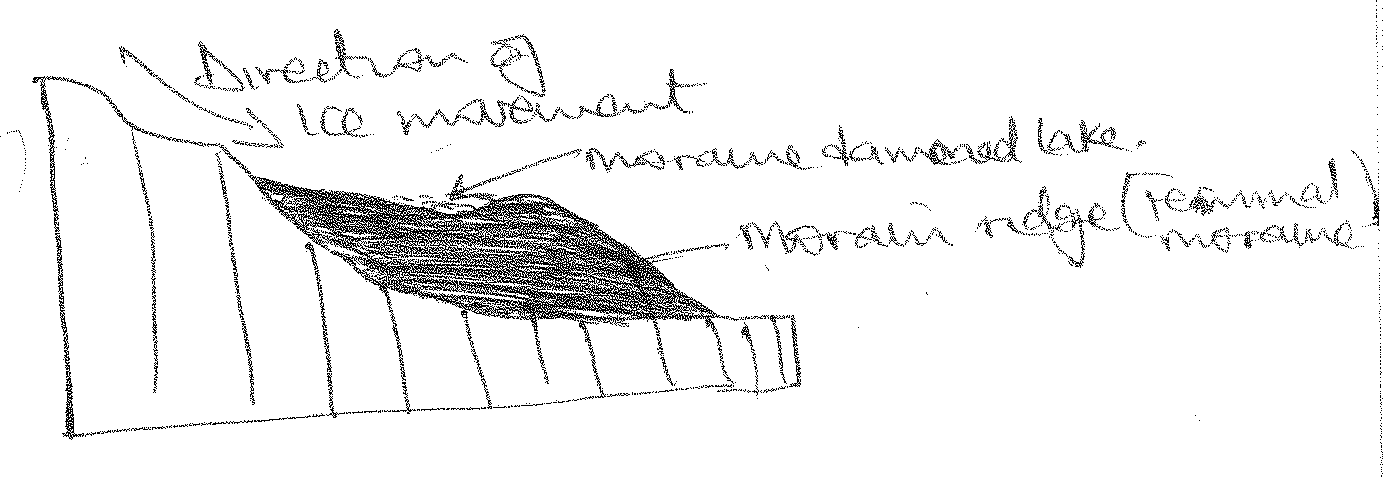 Direction of
Ice movement
moraine dammed lake.
Morain ridge (Terminal
moraine)